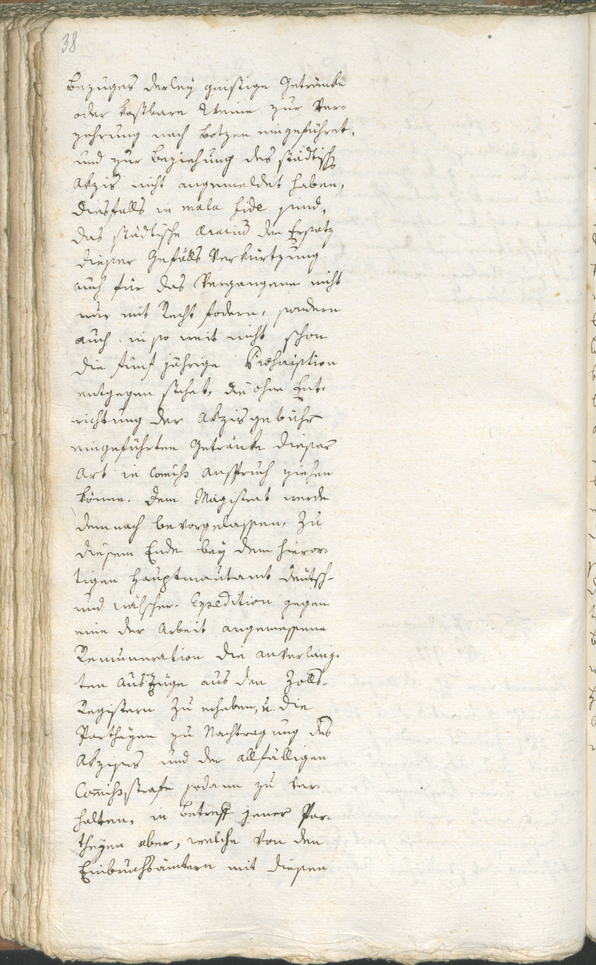 38
bezuges derley geistige Getränke
oder kostbare Weine zur Ver-
zehrung nach Botzen eingeführet,
und zur Beziehung des städtisch
Akzis nicht angemeldet haben,
diesfalls in mala fide sind,
das städtische Ararium den Ersatz
dieser Gefälls Verkürtzung
auch für das Vergangene nicht
nur mit Recht fodern, sondern
auch in so weit nicht schon
die fünf jährige
entgegen stehet, die ohne Ent-
richtung der Akzisgebühr
eingeführten Getränke dieser
Art in Comiss Anspruch ziehen
könne. Dem Magistrat werde
demnach bevorgelassen, zu
diesem Ende bey dem hieror-
tigen Hauptmautamt deutsch-
und wälscher- Expedition gegen
eine der Arbeit angemessene
Remuneration die anverlang-
ten Auszüge aus den Zolls-
Registern zu erheben, u. die
Partheyen zu Nachtragung des
Akzises und der allfälligen
Comissstrafe sodann zu ver-
halten, in Betreff jener Par-
theyen aber, welche von den
Einbruchsämtern mit diesen